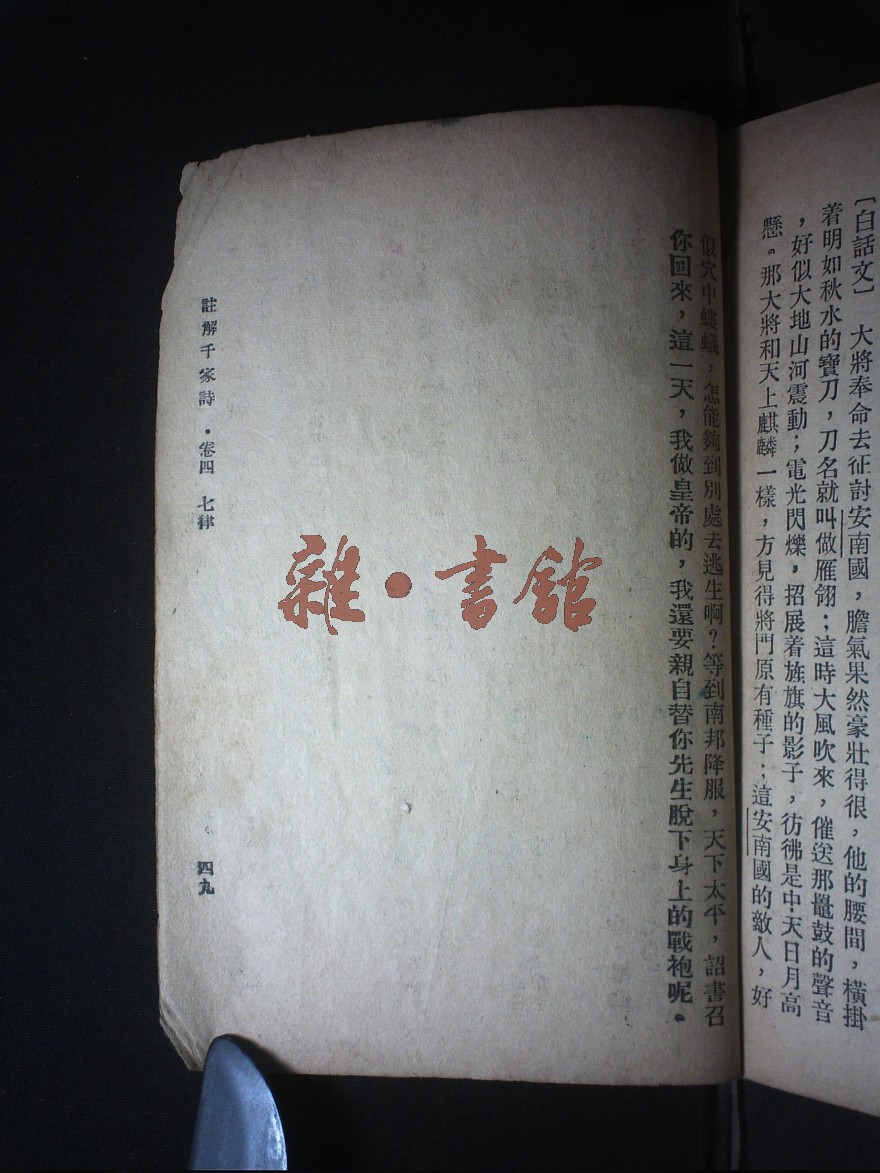 〔白話文〕　大將奉命去征討安南國，膽氣果然豪壯得很，他的腰間，橫掛
着明如秋水的寶刀，刀名就叫做雁翎；這時大風吹來，催送那鼉鼓的聲音
，好似大地山河震動；電光閃爍，招展着旌旗的影子，彷彿是中天日月高
懸。那大將和天上麒麟一樣，方見得將門原有種子；這安南國的敵人，好
似穴中螻蟻，怎能夠到別處去逃生啊？等到南邦降服，天下太平，詔書召
你回來，這一天，我做皇帝的，我還要親自替你先生脫下身上的戰袍呢。
註解千家詩・卷四　七律
四九
雜・書館